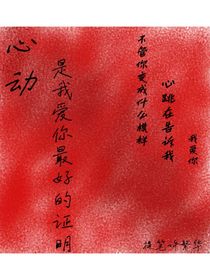 心动
是我爱你最好的证明
不管你变成什么模样
心跳在告诉我
我爱你